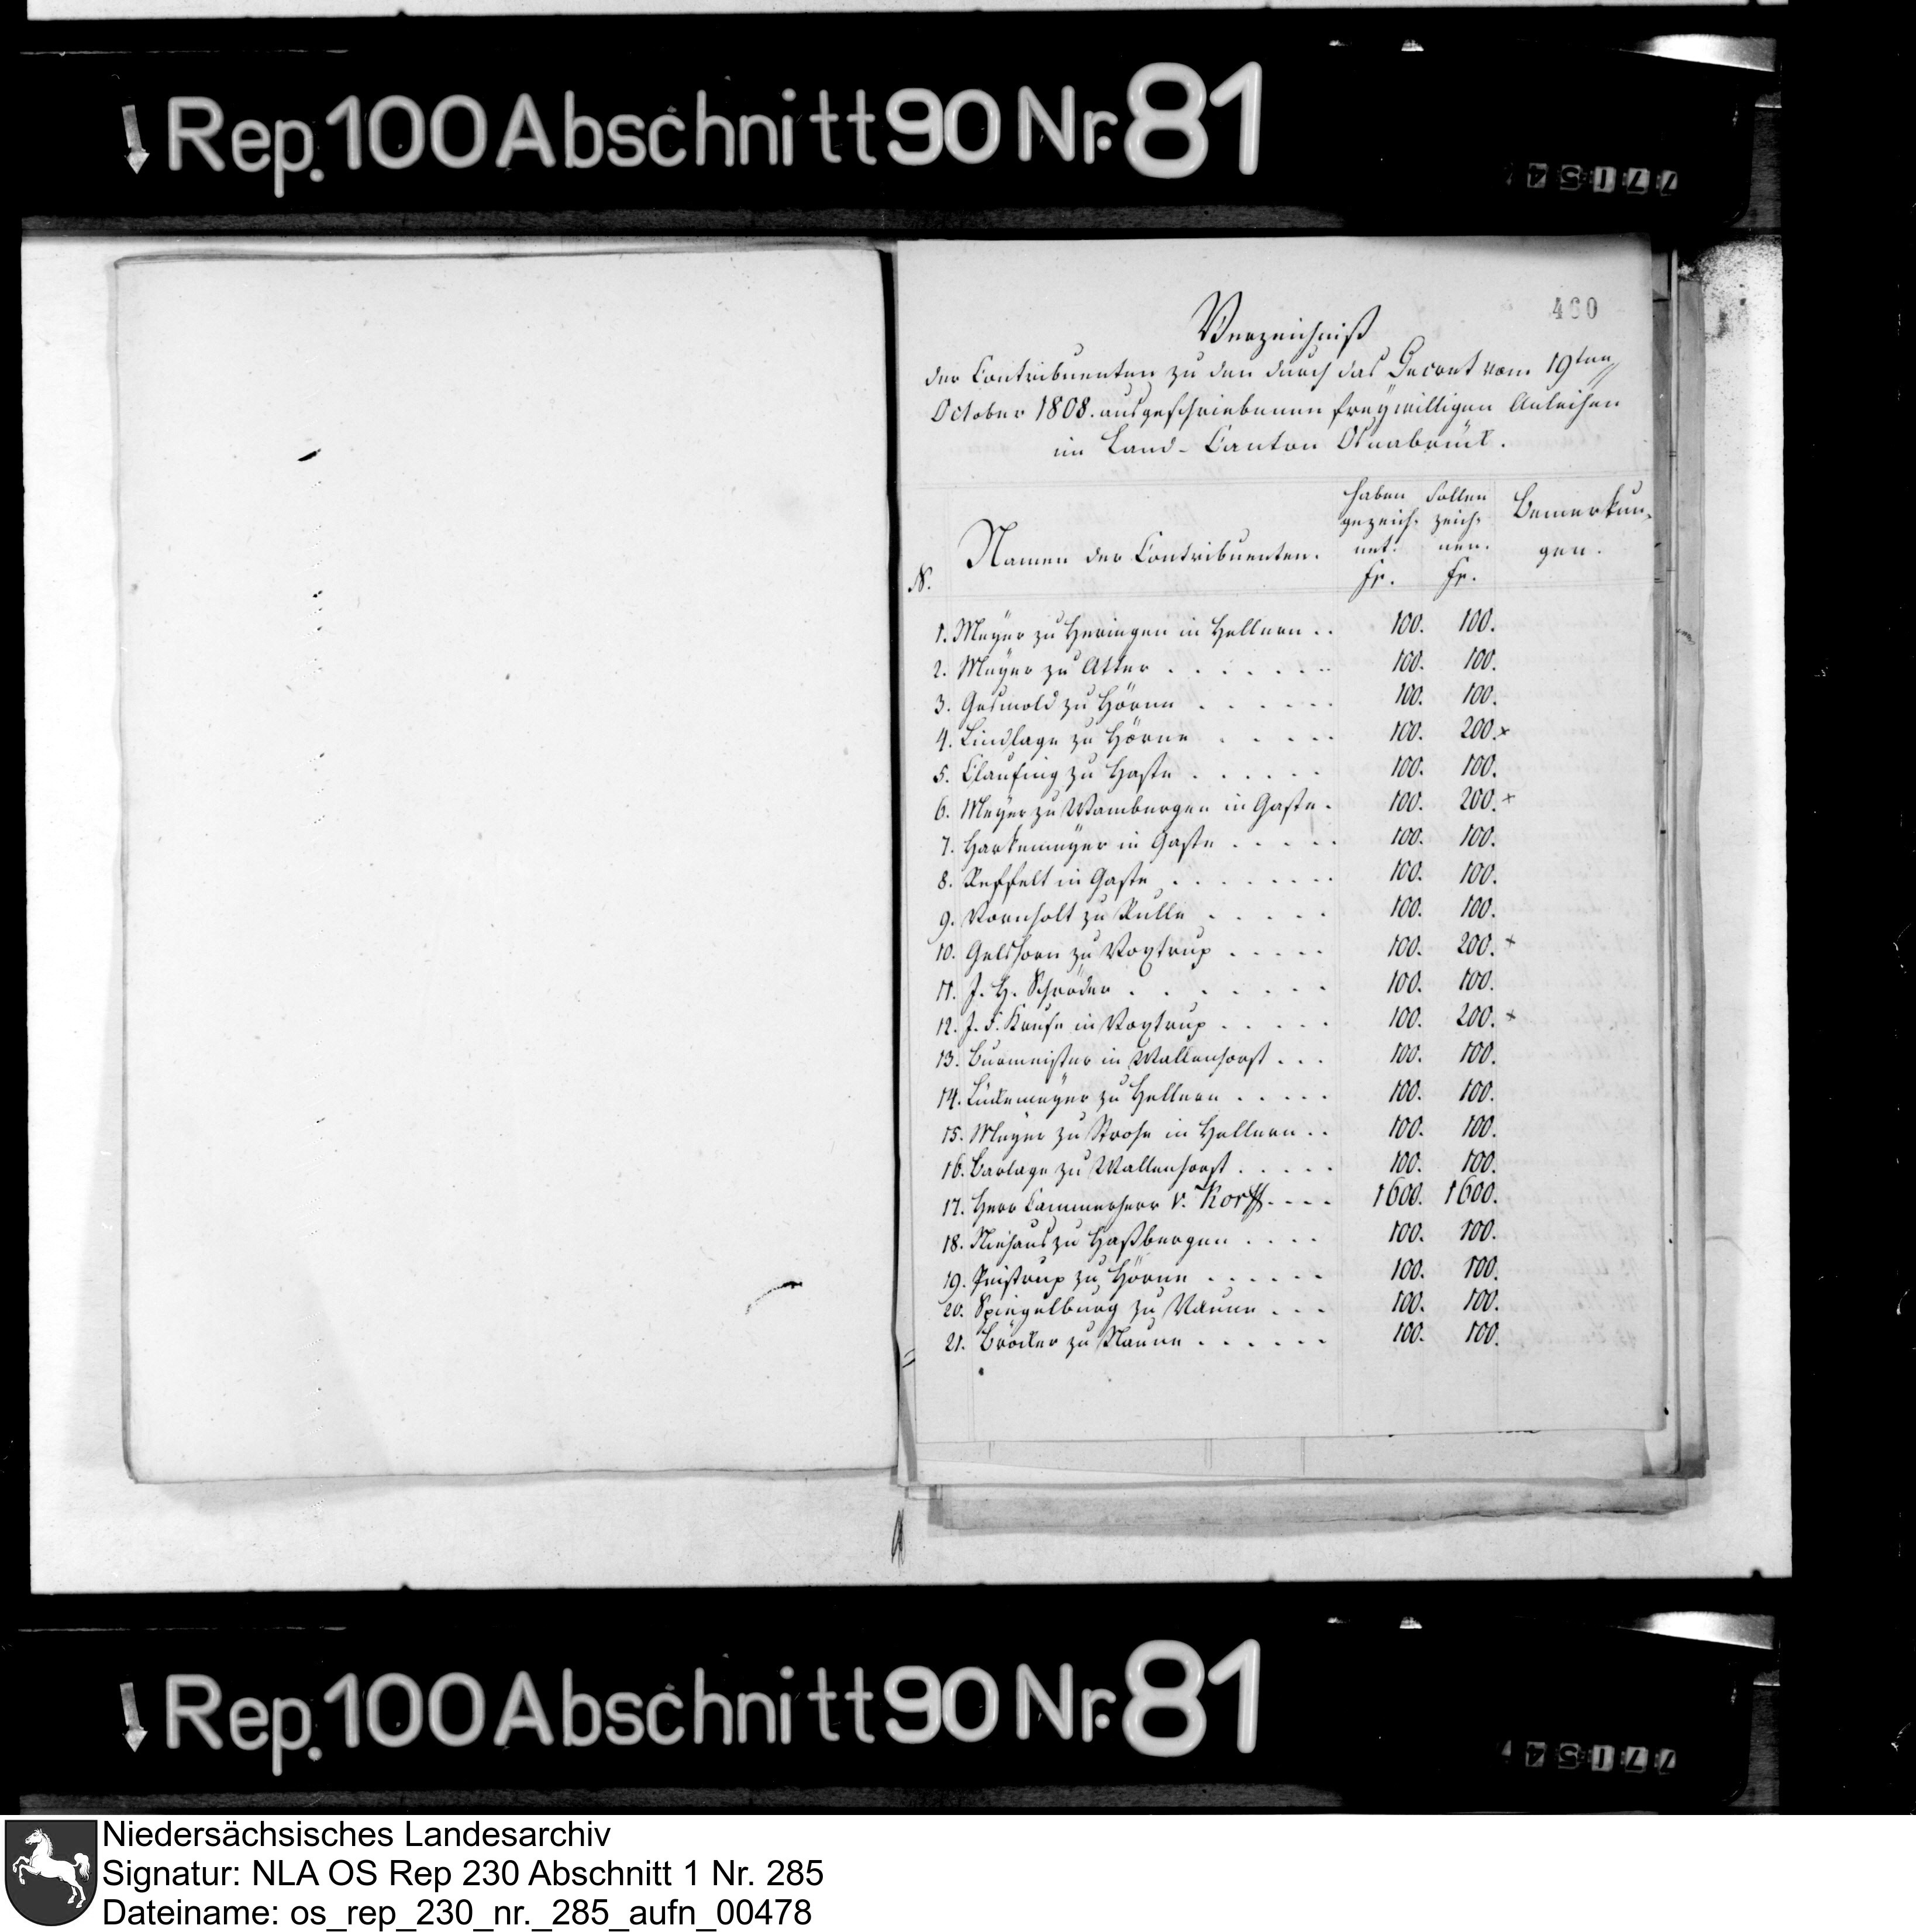 Rep. 100 Abschnitt 90 Nr. 81
460
Verzeichniß
der Contribuenten zu den durch das Decret vom 19ten
October 1808. ausgeschriebenen freywilligen Anleihen
im Land-Canton Osnabrück.
N. Namen der Contribuenten. haben gezeich- net. fr. sollen zeich- nen. fr. Bemerkun- gen.
1. Meyer zu Heringen in Hellern . . 100. 100.
2. Meyer zu Atter . . . . . . . 100. 100.
3. Gesmold zu Hörne . . . . . . 100. 100.
4. Lindlage zu Hörne . . . . . 100. 200. x
5. Clausing zu Haste . . . . . . 100. 100.
6. Meyer zu Wambergen in Gaste . 100. 200. x
7. Harkemeyer in Gaste . . . . . 100. 100.
8. Reffelt in Gaste . . . . . . . 100. 100.
9. Vornholt zu Rulle . . . . . 100. 100.
10. Gelshorn zu Voxtrup . . . . . 100. 200. x
11. J. H. Schröder . . . . . . . 100. 100.
12. J. F. Kruse in Voxtrup . . . . . 100. 200. x
13. Burmeister in Wallenhorst . . . 100. 100.
14. Lückemeyer zu Hellern . . . . . 100. 100.
15. Meyer zu Strohe in Hellern . . 100. 100.
16. Barlage zu Wallenhorst . . . . . 100. 100.
17. Herr Cammerherr v. Korff . . . . 1600. 1600.
18. Niehaus zu Haßbergen . . . . 100. 100.
19. Peistrup zu Hörne . . . . . . 100. 100.
20. Spiegelburg zu Nahne . . . 100. 100.
21. Bröcker zu Nahne . . . . . . 100. 100.
Rep. 100 Abschnitt 90 Nr. 81
Niedersächsisches Landesarchiv
Signatur: NLA OS Rep 230 Abschnitt 1 Nr. 285
Dateiname: os_rep_230_nr._285_aufn_00478